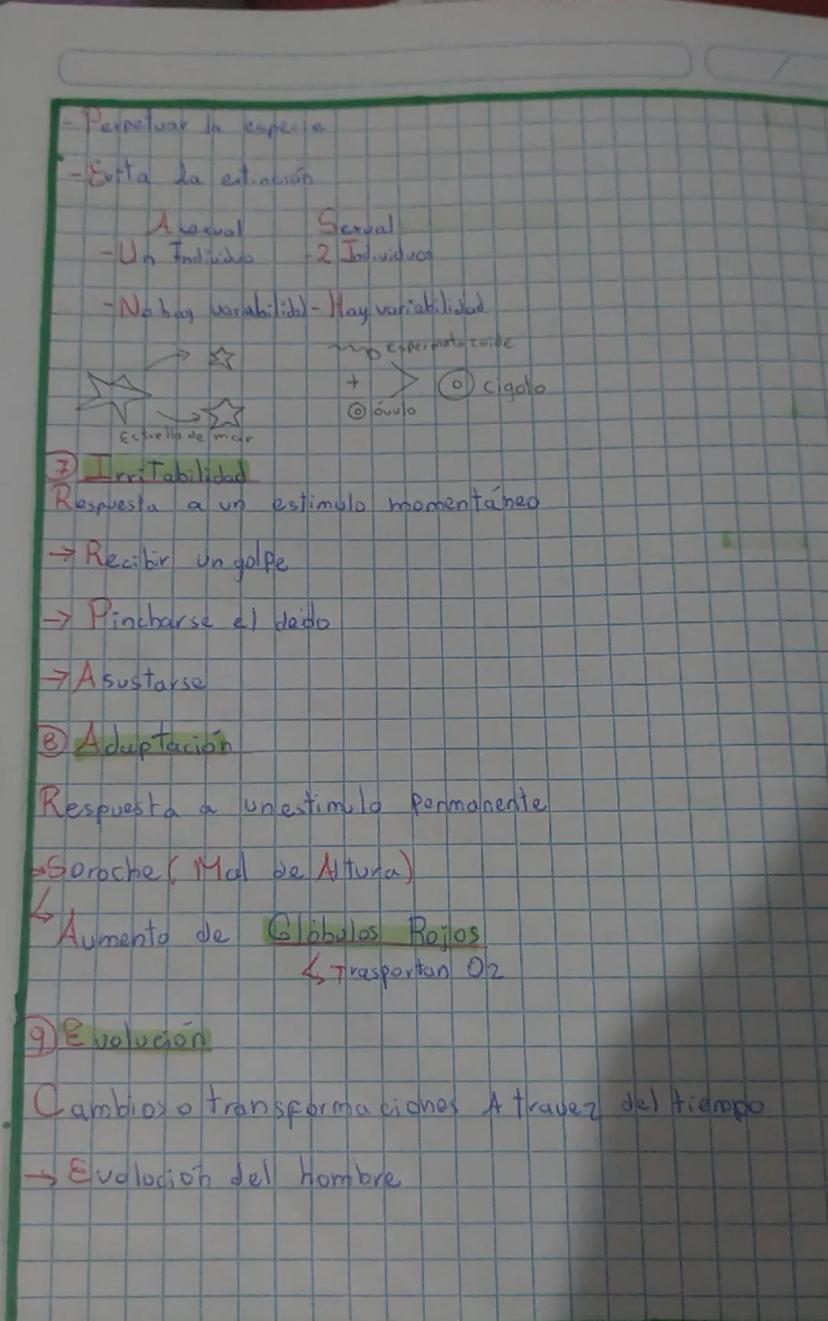 - Perpetuar la especie
- Evita la extinción
Asexual Sexual
- Un Individuo - 2 Individuos
- No hay variabilidad - Hay variabilidad
espermatozoide
+ > cigoto
óvulo
Estrella de mar
7 Irritabilidad
Respuesta a un estimulo momentáneo
→ Recibir un golpe
→ Pincharse el dedo
→ Asustarse
8 Adaptación
Respuesta a un estimulo permanente
→ Soroche ( Mal de Altura)
↳ Aumento de Glóbulos Rojos
↳ Trasportan O2
9 Evolución
Cambios o transformaciones A travez del tiempo
→ Evolocion del hombre